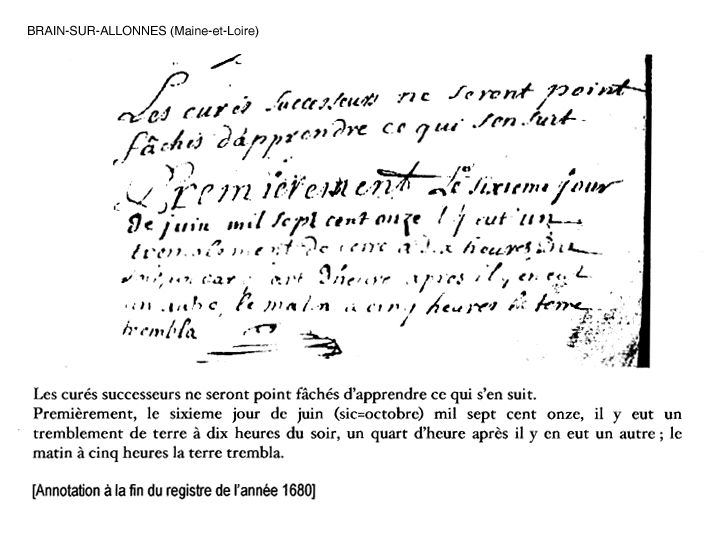 BRAIN-SUR-ALLONNES (Maine-et-Loire)
Les curés successeurs ne seront point
fâchés d'apprendre ce qui s'en suit.
Premièrement Le sixieme jour
de juin mil sept cent onze il y eut un
tremblement de terre a dix heures du
soir, un quart d'heure apres il y en eut
un autre, le matin a cinq heures la terre
trembla
Les curés successeurs ne seront point fâchés d'apprendre ce qui s'en suit.
Premièrement, le sixieme jour de juin (sic=octobre) mil sept cent onze, il y eut un
tremblement de terre à dix heures du soir, un quart d'heure après il y en eut un autre ; le
matin à cinq heures la terre trembla.
[Annotation à la fin du registre de l'année 1680]